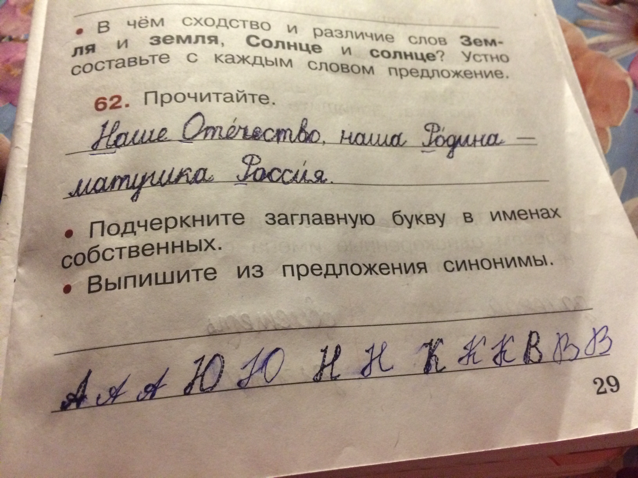 • В чём сходство и различие слов Зем-
ля и земля, Солнце и солнце? Устно
составьте с каждым словом предложение.
62. Прочитайте.
Наше Оте́чество, наша Ро́дина —
матушка Росси́я.
• Подчеркните заглавную букву в именах
собственных.
• Выпишите из предложения синонимы.
А А А Ю Ю Н Н К К К В В В
29